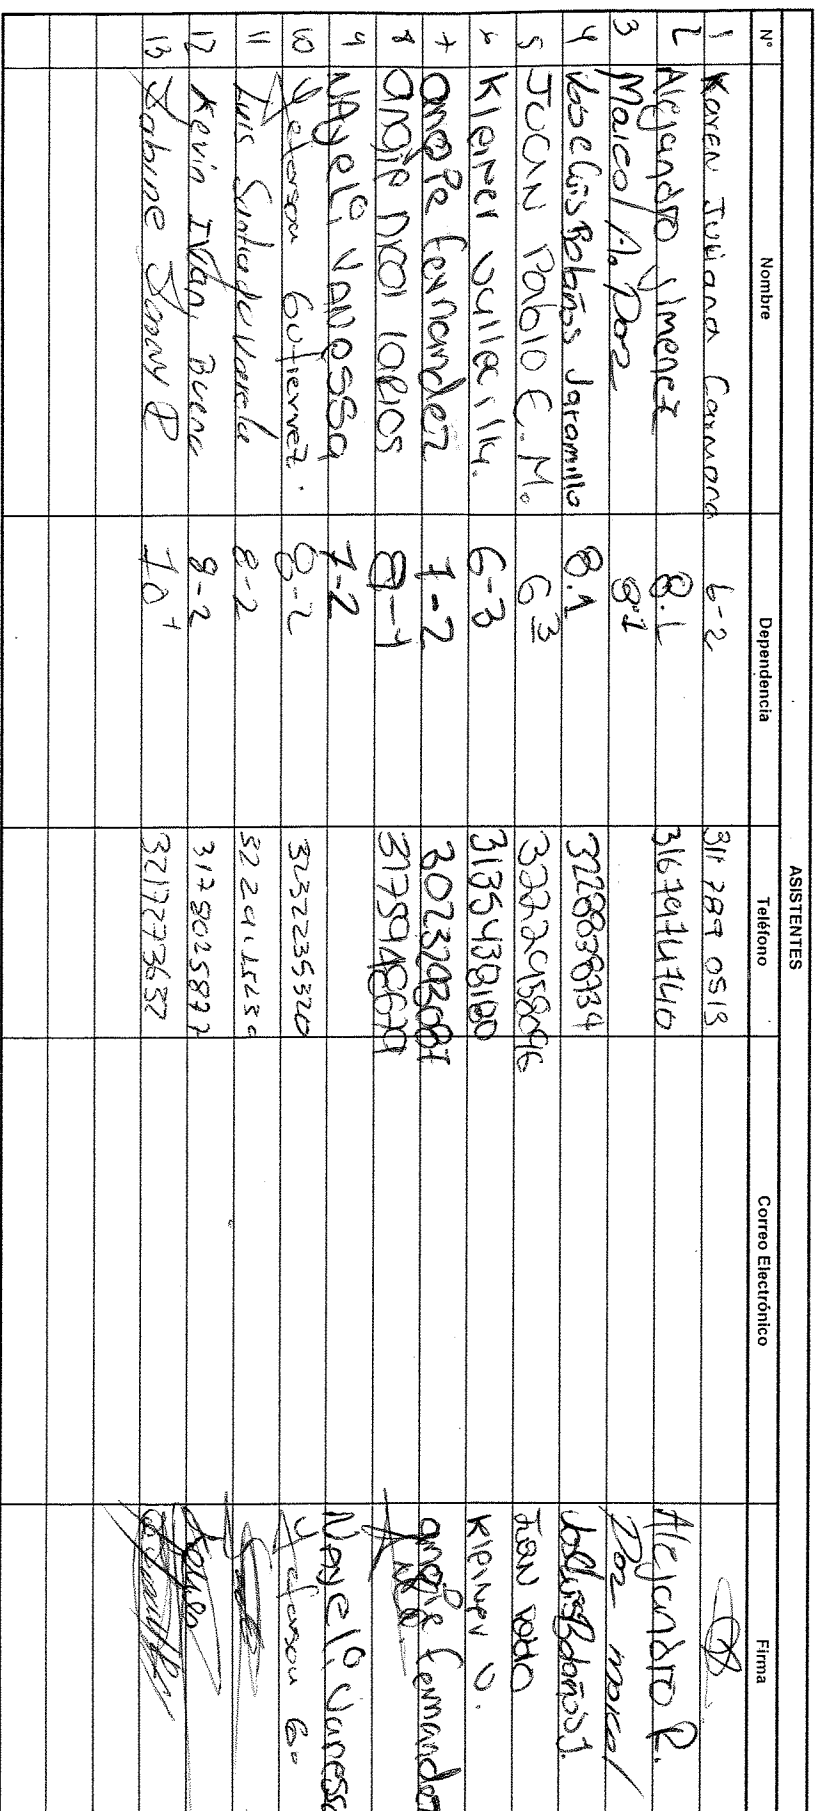 ASISTENTES
N° Nombre Dependencia Teléfono Correo Electrónico Firma
1 Karen Juliana Carmona 6-2 311 789 0513
2 Alejandro Jimenez 8.1 3167974740 Alejandro R.
3 Maicol A. Paz 8.1 Paz maicol
4 Jose Luis Bolaños Jaramillo 8.1 3228838734 Jose Luis Bolaños J.
5 Juan Pablo C.M. 63 3222458096 Juan Pablo
6 Kleiner Villa 6-3 3135438180 Kleiner V.
7 angie fernandez 7-2 3023293087 angie fernandez
8 angie Nicol larios 8-4 3175948679
9 NAyeli Vanessa 7-2 Nayeli Vanessa
10 Yeferson Gutierrez. 8-2 3232235320 Yeferson Gu
11 Luis Santiago Varela 8-2
12 Kevin Ivan Bueno 8-2 3178025877
13 10 3217273637